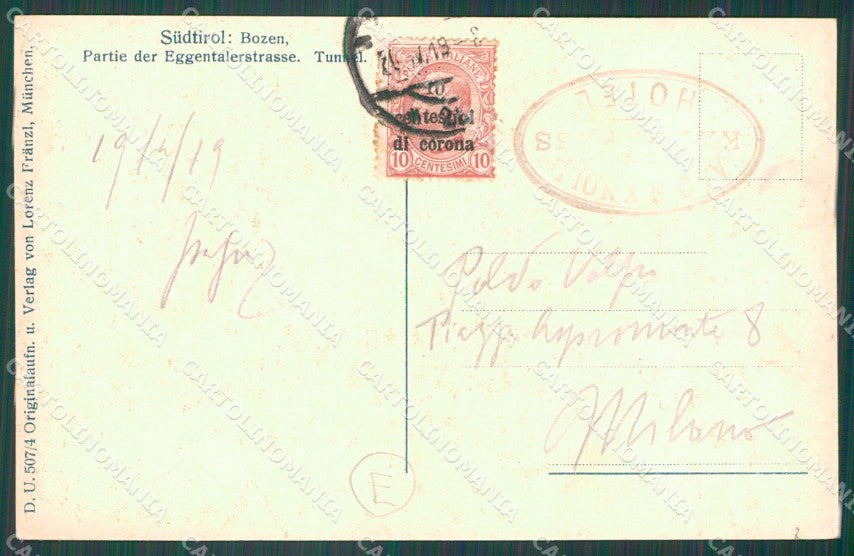 Südtirol: Bozen,
Partie der Eggentalerstrasse. Tunnel.
D. U. 507/4 Originalaufn. u. Verlag von Lorenz Fränzl, München.
ITALIANE
10
centesimi
di corona
10 CENTESIMI 10
HOTEL
19/4/19
Poldo Volpi
Piazza Aspromonte 8
Milano
E
CARTOLINOMANIA